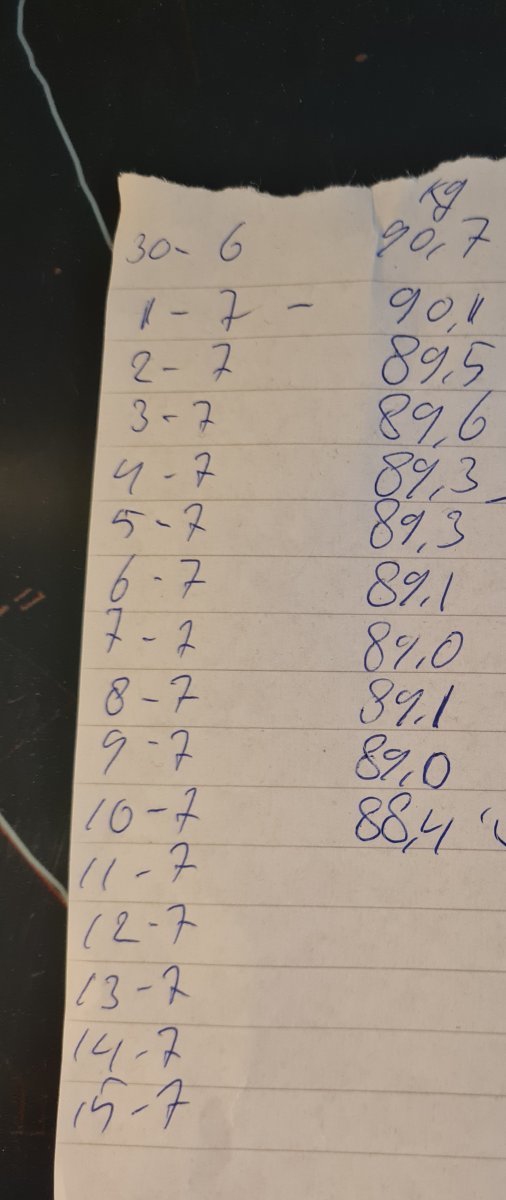 kg
30- 6 90,7
1 - 7 - 90,1
2 - 7 89,5
3 - 7 89,6
4 - 7 89,3
5 - 7 89,3
6 - 7 89,1
7 - 7 89,0
8 - 7 89,1
9 - 7 89,0
10 - 7 88,4
11 - 7
12 - 7
13 - 7
14 - 7
15 - 7